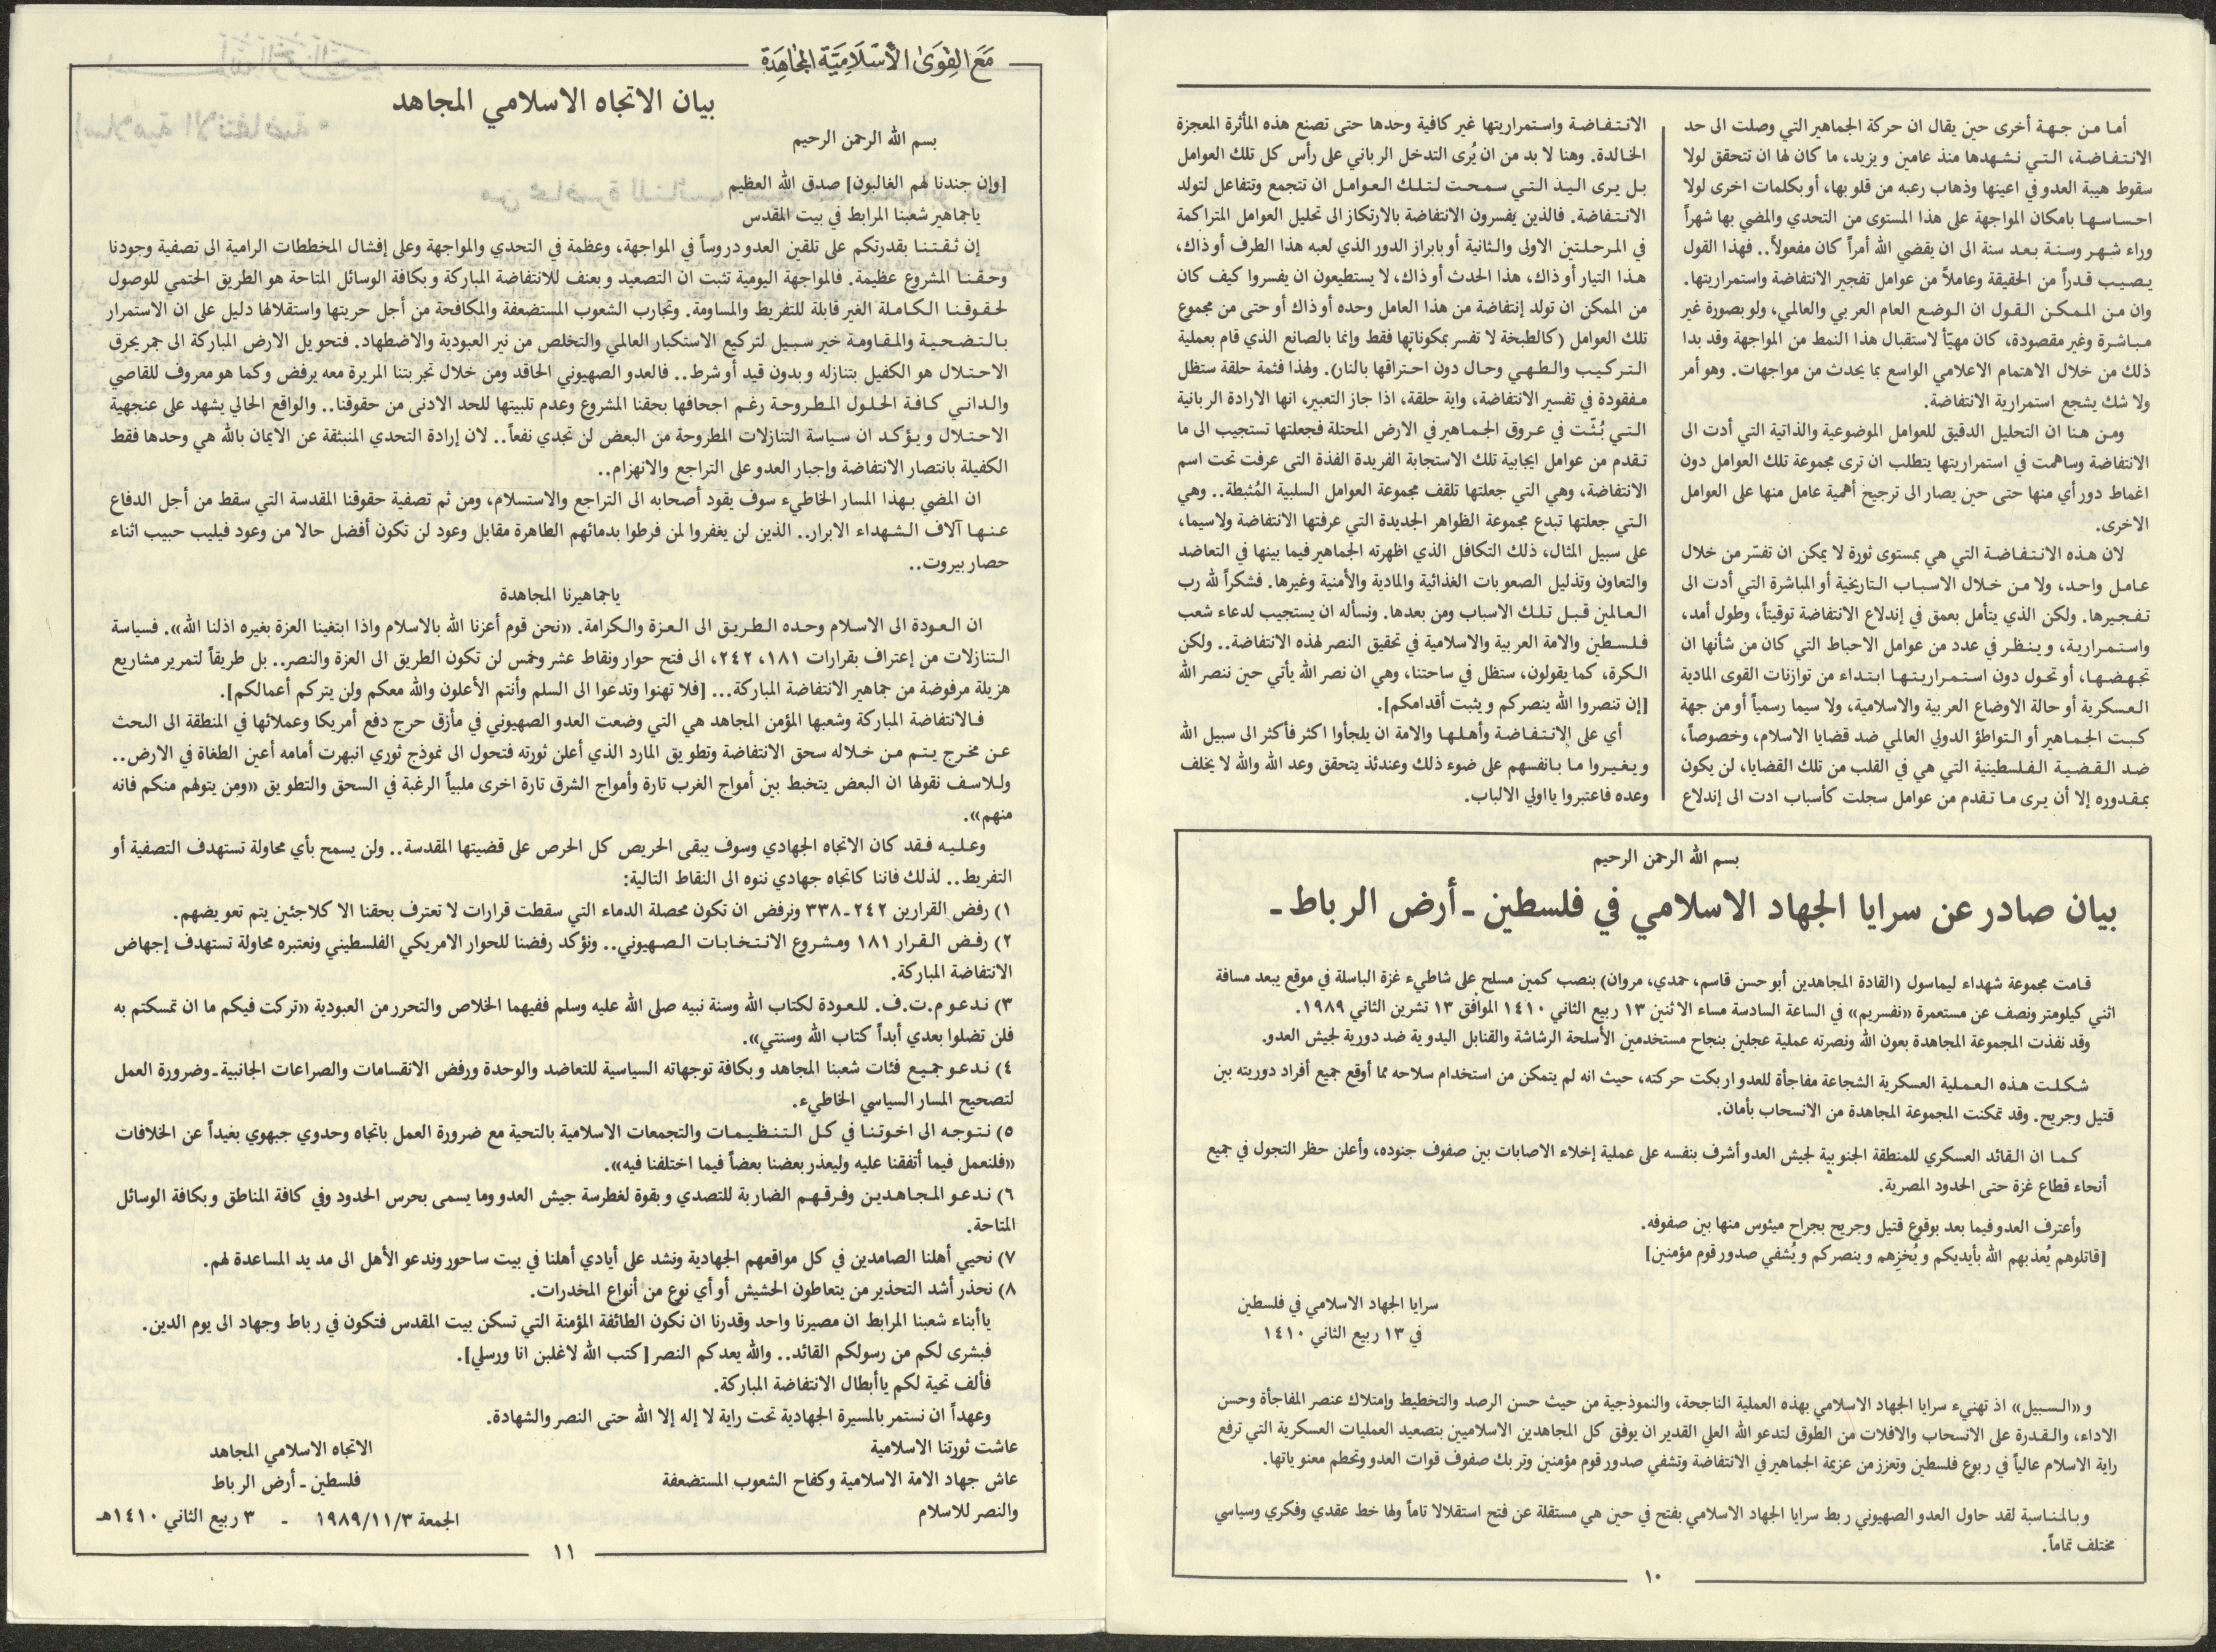 أما من جهة أخرى حين يقال ان حركة الجماهير التي وصلت الى حد
الانتفاضة، التي نشهدها منذ عامين ويزيد، ما كان لها ان تتحقق لولا
سقوط هيبة العدو في اعينها وذهاب رعبه من قلوبها، أو بكلمات اخرى لولا
احساسها بامكان المواجهة على هذا المستوى من التحدي والمضي بها شهراً
وراء شهر وسنة بعد سنة الى ان يقضي الله أمراً كان مفعولاً.. فهذا القول
يصيب قدراً من الحقيقة وعاملاً من عوامل تفجير الانتفاضة واستمراريتها.
وان من الممكن القول ان الوضع العام العربي والعالمي، ولو بصورة غير
مباشرة وغير مقصودة، كان مهيّأ لاستقبال هذا النمط من المواجهة وقد بدا
ذلك من خلال الاهتمام الاعلامي الواسع بما يحدث من مواجهات. وهو أمر
ولا شك يشجع استمرارية الانتفاضة.
ومن هنا ان التحليل الدقيق للعوامل الموضوعية والذاتية التي أدت الى
الانتفاضة وساهمت في استمراريتها يتطلب ان ترى مجموعة تلك العوامل دون
اغماط دور أي منها حتى حين يصار الى ترجيح أهمية عامل منها على العوامل
الاخرى.
لان هذه الانتفاضة التي هي بمستوى ثورة لا يمكن ان تفسّر من خلال
عامل واحد، ولا من خلال الاسباب التاريخية أو المباشرة التي أدت الى
تفجيرها. ولكن الذي يتأمل بعمق في إندلاع الانتفاضة توقيتاً، وطول أمد،
واستمرارية، وينظر في عدد من عوامل الاحباط التي كان من شأنها ان
تجهضها، أو تحول دون استمراريتها ابتداء من توازنات القوى المادية
العسكرية أو حالة الاوضاع العربية والاسلامية، ولا سيما رسمياً أو من جهة
كبت الجماهير أو التواطؤ الدولي العالمي ضد قضايا الاسلام، وخصوصاً،
ضد القضية الفلسطينية التي هي في القلب من تلك القضايا، لن يكون
بمقدوره إلا أن يرى ما تقدم من عوامل سجلت كأسباب ادت الى إندلاع
الانتفاضة واستمراريتها غير كافية وحدها حتى تصنع هذه المأثرة المعجزة
الخالدة. وهنا لا بد من ان يُرى التدخل الرباني على رأس كل تلك العوامل
بل يرى اليد التي سمحت لتلك العوامل ان تتجمع وتتفاعل لتولد
الانتفاضة. فالذين يفسرون الانتفاضة بالارتكاز الى تحليل العوامل المتراكمة
في المرحلتين الاولى والثانية أو بابراز الدور الذي لعبه هذا الطرف أو ذاك،
هذا التيار أو ذاك، هذا الحدث أو ذاك، لا يستطيعون ان يفسروا كيف كان
من الممكن ان تولد إنتفاضة من هذا العامل وحده أو ذاك أو حتى من مجموع
تلك العوامل (كالطبخة لا تفسر بمكوناتها فقط وإنما بالصانع الذي قام بعملية
التركيب والطهي وحال دون احتراقها بالنار). ولهذا فثمة حلقة ستظل
مفقودة في تفسير الانتفاضة، واية حلقة، اذا جاز التعبير، انها الارادة الربانية
التي بُثّت في عروق الجماهير في الارض المحتلة فجعلتها تستجيب الى ما
تقدم من عوامل ايجابية تلك الاستجابة الفريدة الفذة التى عرفت تحت اسم
الانتفاضة، وهي التي جعلتها تلقف مجموعة العوامل السلبية المُثبطة.. وهي
التي جعلتها تبدع مجموعة الظواهر الجديدة التي عرفتها الانتفاضة ولاسيما،
على سبيل المثال، ذلك التكافل الذي اظهرته الجماهير فيما بينها في التعاضد
والتعاون وتذليل الصعوبات الغذائية والمادية والأمنية وغيرها. فشكراً لله رب
العالمين قبل تلك الاسباب ومن بعدها. ونسأله ان يستجيب لدعاء شعب
فلسطين والامة العربية والاسلامية في تحقيق النصر لهذه الانتفاضة.. ولكن
الكرة، كما يقولون، ستظل في ساحتنا، وهي ان نصر الله يأتي حين ننصر الله
[إن تنصروا الله ينصركم ويثبت أقدامكم].
أي على الانتفاضة وأهلها والامة ان يلجأوا اكثر فأكثر الى سبيل الله
ويغيروا ما بانفسهم على ضوء ذلك وعندئذ يتحقق وعد الله والله لا يخلف
وعده فاعتبروا يااولي الالباب.
بسم الله الرحمن الرحيم
بيان صادر عن سرايا الجهاد الاسلامي في فلسطين ـ أرض الرباط ـ
قامت مجموعة شهداء ليماسول (القادة المجاهدين أبو حسن قاسم، حمدي، مروان) بنصب كمين مسلح على شاطيء غزة الباسلة في موقع يبعد مسافة
اثني كيلومتر ونصف عن مستعمرة «نفسريم» في الساعة السادسة مساء الاثنين ١٣ ربيع الثاني ١٤١٠ الموافق ١٣ تشرين الثاني ١٩٨٩.
وقد نفذت المجموعة المجاهدة بعون الله ونصرته عملية عجلين بنجاح مستخدمين الأسلحة الرشاشة والقنابل اليدوية ضد دورية لجيش العدو.
شكلت هذه العملية العسكرية الشجاعة مفاجأة للعدو اربكت حركته، حيث انه لم يتمكن من استخدام سلاحه مما أوقع جميع أفراد دوريته بين
قتيل وجريح. وقد تمكنت المجموعة المجاهدة من الانسحاب بأمان.
كما ان القائد العسكري للمنطقة الجنوبية لجيش العدو أشرف بنفسه على عملية إخلاء الاصابات بين صفوف جنوده، وأعلن حظر التجول في جميع
أنحاء قطاع غزة حتى الحدود المصرية.
وأعترف العدو فيما بعد بوقوع قتيل وجريح بجراح ميئوس منها بين صفوفه.
[قاتلوهم يُعذبهم الله بأيديكم ويُخزِهم وينصركم ويُشفي صدور قوم مؤمنين]
سرايا الجهاد الاسلامي في فلسطين
في ١٣ ربيع الثاني ١٤١٠
و«السبيل» اذ تهنيء سرايا الجهاد الاسلامي بهذه العملية الناجحة، والنموذجية من حيث حسن الرصد والتخطيط وإمتلاك عنصر المفاجأة وحسن
الاداء، والقدرة على الانسحاب والافلات من الطوق لتدعو الله العلي القدير ان يوفق كل المجاهدين الاسلاميين بتصعيد العمليات العسكرية التي ترفع
راية الاسلام عالياً في ربوع فلسطين وتعزز من عزيمة الجماهير في الانتفاضة وتشفي صدور قوم مؤمنين وتربك صفوف قوات العدو وتحطم معنوياتها.
وبالمناسبة لقد حاول العدو الصهيوني ربط سرايا الجهاد الاسلامي بفتح في حين هي مستقلة عن فتح استقلالا تاماً ولها خط عقدي وفكري وسياسي
مختلف تماماً.
١٠
مَعَ القِوَىٰ الأسْلَامِيَّة المُجَاهِدَة
بيان الاتجاه الاسلامي المجاهد
بسم الله الرحمن الرحيم
[وإن جندنا لهم الغالبون] صدق الله العظيم
ياجماهير شعبنا المرابط في بيت المقدس
إن ثقتنا بقدرتكم على تلقين العدو دروساً في المواجهة، وعظمة في التحدي والمواجهة وعلى إفشال المخططات الرامية الى تصفية وجودنا
وحقنا المشروع عظيمة. فالمواجهة اليومية تثبت ان التصعيد وبعنف للانتفاضة المباركة وبكافة الوسائل المتاحة هو الطريق الحتمي للوصول
لحقوقنا الكاملة الغير قابلة للتفريط والمساومة. وتجارب الشعوب المستضعفة والمكافحة من أجل حريتها واستقلالها دليل على ان الاستمرار
بالتضحية والمقاومة خير سبيل لتركيع الاستكبار العالمي والتخلص من نير العبودية والاضطهاد. فتحويل الارض المباركة الى جمر يحرق
الاحتلال هو الكفيل بتنازله وبدون قيد أو شرط.. فالعدو الصهيوني الحاقد ومن خلال تجربتنا المريرة معه يرفض وكما هو معروف للقاصي
والداني كافة الحلول المطروحة رغم اجحافها بحقنا المشروع وعدم تلبيتها للحد الادنى من حقوقنا.. والواقع الحالي يشهد على عنجهية
الاحتلال ويؤكد ان سياسة التنازلات المطروحة من البعض لن تجدي نفعاً.. لان إرادة التحدي المنبثقة عن الايمان بالله هي وحدها فقط
الكفيلة بانتصار الانتفاضة وإجبار العدو على التراجع والانهزام..
ان المضي بهذا المسار الخاطيء سوف يقود أصحابه الى التراجع والاستسلام، ومن ثم تصفية حقوقنا المقدسة التي سقط من أجل الدفاع
عنها آلاف الشهداء الابرار.. الذين لن يغفروا لمن فرطوا بدمائهم الطاهرة مقابل وعود لن تكون أفضل حالا من وعود فيليب حبيب اثناء
حصار بيروت..
ياجماهيرنا المجاهدة
ان العودة الى الاسلام وحده الطريق الى العزة والكرامة. «نحن قوم أعزنا الله بالاسلام واذا ابتغينا العزة بغيره اذلنا الله». فسياسة
التنازلات من إعتراف بقرارات ١٨١، ٢٤٢، الى فتح حوار ونقاط عشر وخمس لن تكون الطريق الى العزة والنصر.. بل طريقاً لتمرير مشاريع
هزيلة مرفوضة من جماهير الانتفاضة المباركة... [فلا تهنوا وتدعوا الى السلم وأنتم الأعلون والله معكم ولن يتركم أعمالكم].
فالانتفاضة المباركة وشعبها المؤمن المجاهد هي التي وضعت العدو الصهيوني في مأزق حرج دفع أمريكا وعملائها في المنطقة الى البحث
عن مخرج يتم من خلاله سحق الانتفاضة وتطويق المارد الذي أعلن ثورته فتحول الى نموذج ثوري انبهرت أمامه أعين الطغاة في الارض..
وللاسف نقولها ان البعض يتخبط بين أمواج الغرب تارة وأمواج الشرق تارة اخرى ملبياً الرغبة في السحق والتطويق «ومن يتولهم منكم فانه
منهم».
وعليه فقد كان الاتجاه الجهادي وسوف يبقى الحريص كل الحرص على قضيتها المقدسة.. ولن يسمح بأي محاولة تستهدف التصفية أو
التفريط.. لذلك فاننا كاتجاه جهادي ننوه الى النقاط التالية:
١) رفض القرارين ٢٤٢ـ٣٣٨ ونرفض ان تكون محصلة الدماء التي سقطت قرارات لا تعترف بحقنا الا كلاجئين يتم تعويضهم.
٢) رفض القرار ١٨١ ومشروع الانتخابات الصهيوني.. ونؤكد رفضنا للحوار الامريكي الفلسطيني ونعتبره محاولة تستهدف إجهاض
الانتفاضة المباركة.
٣) ندعو م.ت.ف. للعودة لكتاب الله وسنة نبيه صلى الله عليه وسلم ففيهما الخلاص والتحرر من العبودية «تركت فيكم ما ان تمسكتم به
فلن تضلوا بعدي أبداً كتاب الله وسنتي».
٤) ندعو جميع فئات شعبنا المجاهد وبكافة توجهاته السياسية للتعاضد والوحدة ورفض الانقسامات والصراعات الجانبية ـ وضرورة العمل
لتصحيح المسار السياسي الخاطيء.
٥) نتوجه الى اخوتنا في كل التنظيمات والتجمعات الاسلامية بالتحية مع ضرورة العمل باتجاه وحدوي جبهوي بعيداً عن الخلافات
«فلنعمل فيما أتفقنا عليه وليعذر بعضنا بعضاً فيما اختلفنا فيه».
٦) ندعو المجاهدين وفرقهم الضاربة للتصدي وبقوة لغطرسة جيش العدو وما يسمى بحرس الحدود وفي كافة المناطق وبكافة الوسائل
المتاحة.
٧) نحيي أهلنا الصامدين في كل مواقعهم الجهادية ونشد على أيادي أهلنا في بيت ساحور وندعو الأهل الى مد يد المساعدة لهم.
٨) نحذر أشد التحذير من يتعاطون الحشيش أو أي نوع من أنواع المخدرات.
ياأبناء شعبنا المرابط ان مصيرنا واحد وقدرنا ان نكون الطائفة المؤمنة التي تسكن بيت المقدس فتكون في رباط وجهاد الى يوم الدين.
فبشرى لكم من رسولكم القائد.. والله يعدكم النصر [كتب الله لاغلبن انا ورسلي].
فألف تحية لكم ياأبطال الانتفاضة المباركة.
وعهداً ان نستمر بالمسيرة الجهادية تحت راية لا إله إلا الله حتى النصر والشهادة.
عاشت ثورتنا الاسلامية
عاش جهاد الامة الاسلامية وكفاح الشعوب المستضعفة
والنصر للاسلام
الاتجاه الاسلامي المجاهد
فلسطين ـ أرض الرباط
الجمعة ١٩٨٩/١١/٣ ـ ٣ ربيع الثاني ١٤١٠هـ
١١